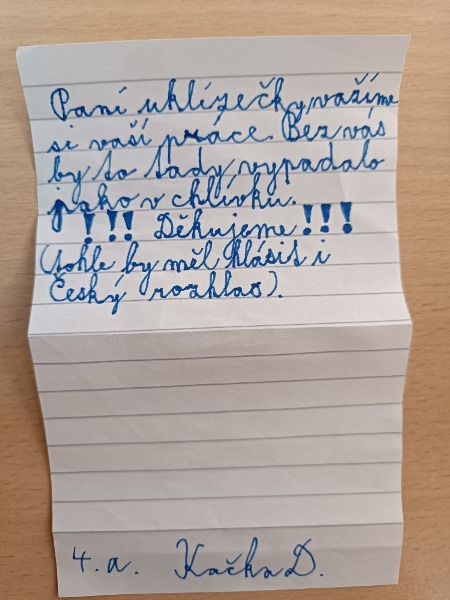 Paní uklízečky, vážíme
si vaší práce. Bez vás
by to tady vypadalo
jako v chlívku.
!!! Děkujeme !!!
(tohle by měl hlásit i
Český rozhlas).
4. a. Kačka D.